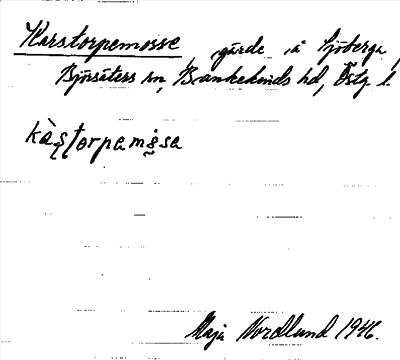 Karstorpemosse, gärde å Sjöberga,
Björsäters sn, Bankekinds hd, Östg. l.
kàs̨torpamåsa
Maja Nordlund 1946.